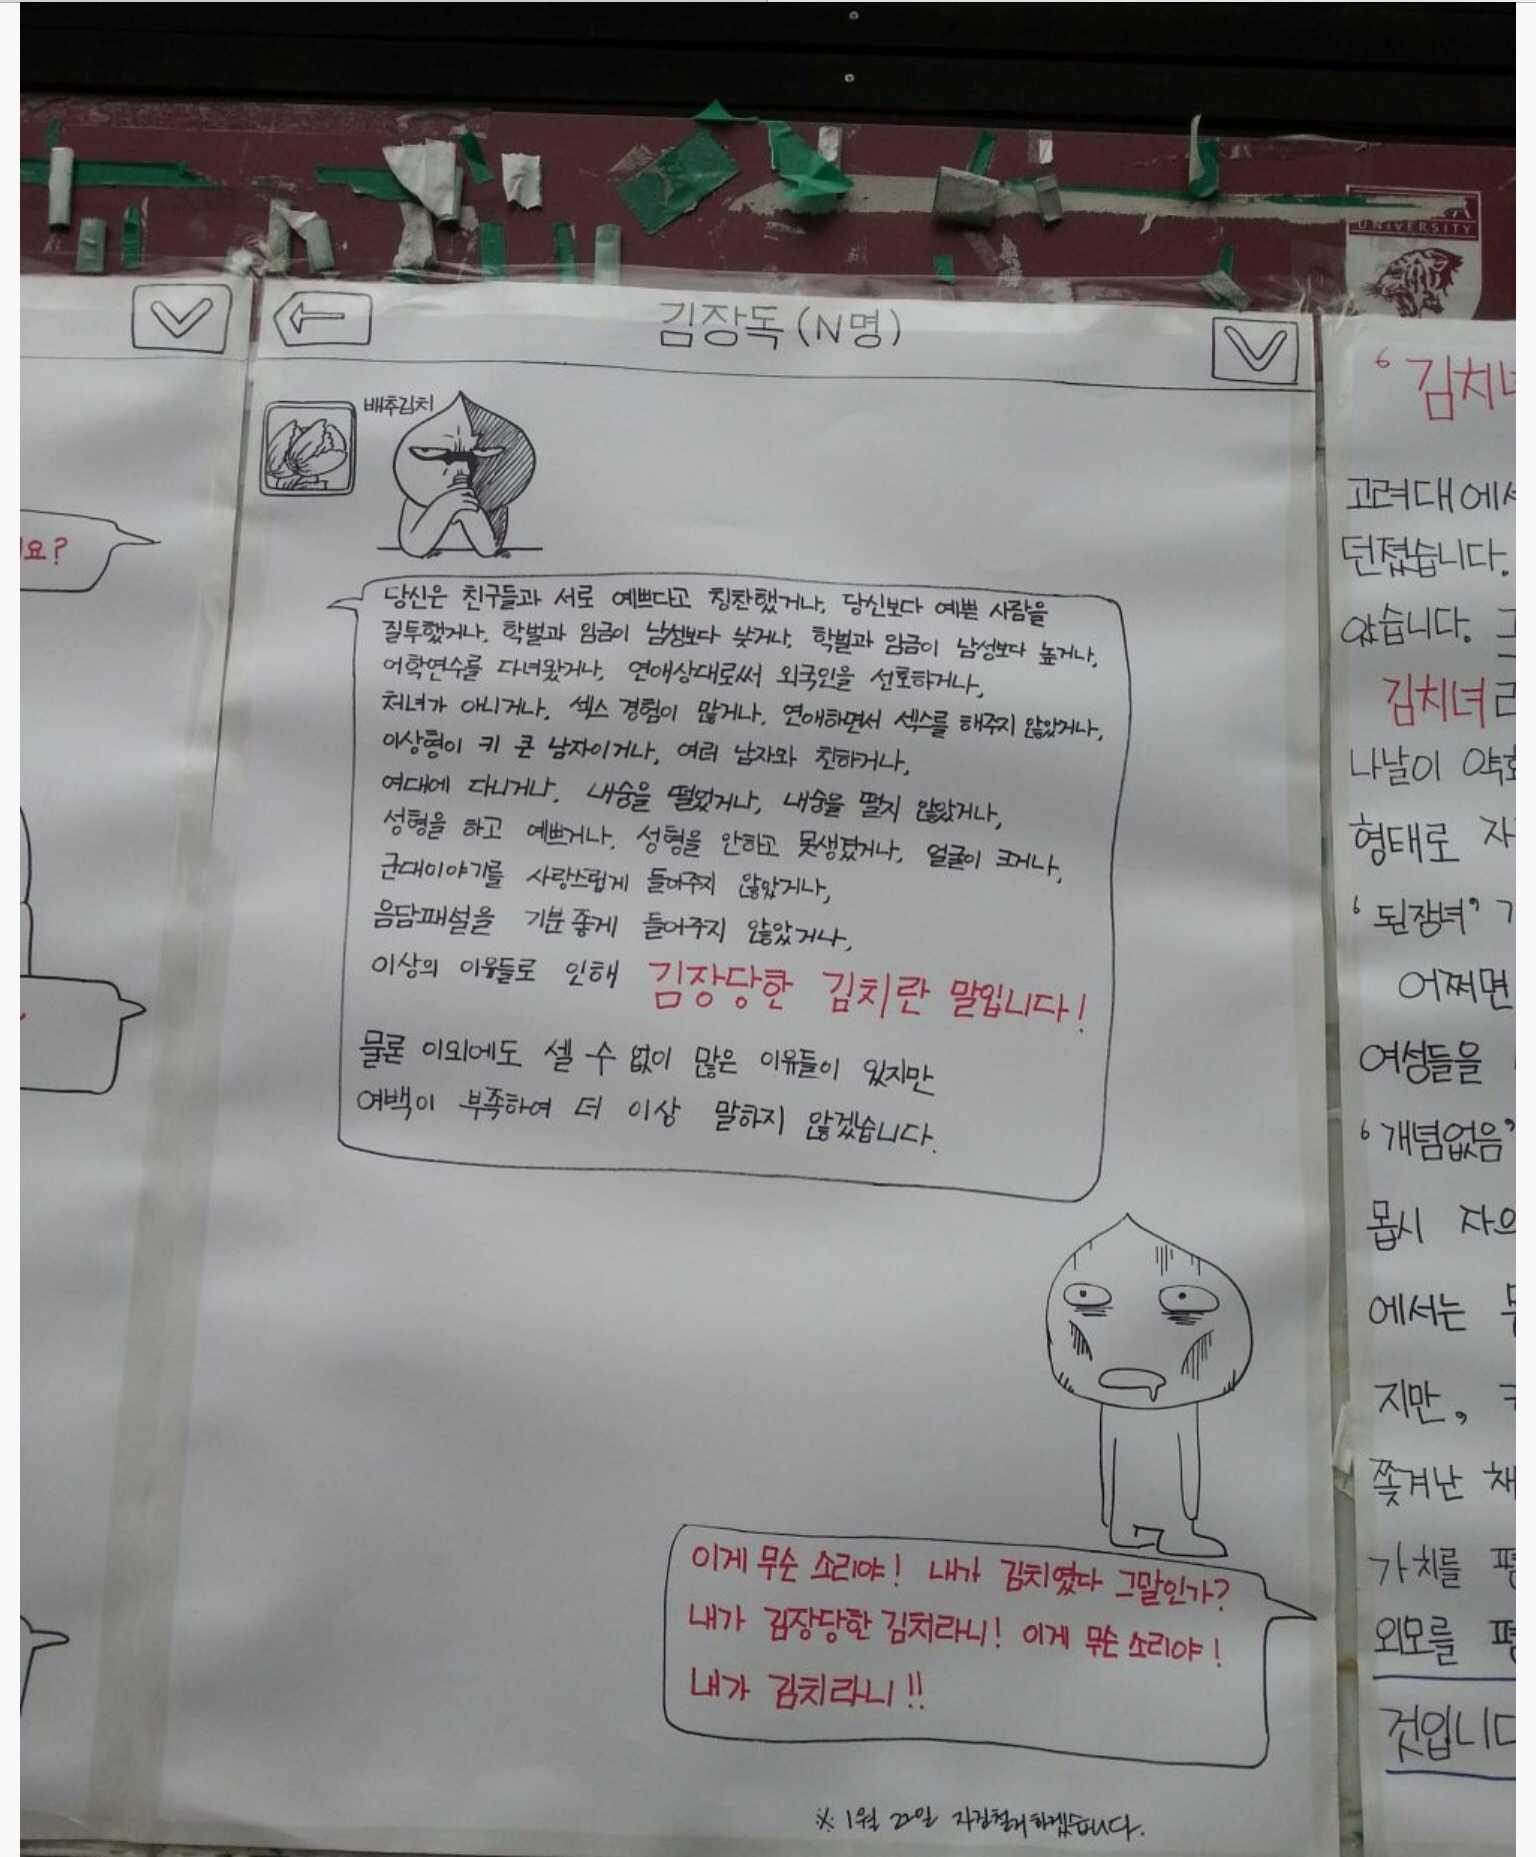 UNIVERSITY
김장독(N명)
배추김치
당신은 친구들과 서로 예쁘다고 칭찬했거나, 당신보다 예쁜 사람을
질투했거나, 학벌과 임금이 남성보다 낮거나, 학벌과 임금이 남성보다 높거나,
어학연수를 다녀왔거나, 연애상대로써 외국인을 선호하거나,
처녀가 아니거나, 섹스 경험이 많거나, 연애하면서 섹스를 해주지 않았거나,
이상형이 키 큰 남자이거나, 여러 남자와 친하거나,
여대에 다니거나, 내숭을 떨었거나, 내숭을 떨지 않았거나,
성형을 하고 예쁘거나, 성형을 안하고 못생겼거나, 얼굴이 크거나,
군대이야기를 사랑스럽게 들어주지 않았거나,
음담패설을 기분좋게 들어주지 않았거나,
이상의 이유들로 인해 김장당한 김치란 말입니다!
물론 이외에도 셀 수 없이 많은 이유들이 있지만
여백이 부족하여 더 이상 말하지 않겠습니다.
이게 무슨 소리야! 내가 김치였다 그말인가?
내가 김장당한 김치라니! 이게 무슨 소리야!
내가 김치라니!!
※ 1월 22일 자진철거하겠습니다.
요?
고려대에서
던졌습니다.
았습니다.
김치녀
나날이
형태로
'된장녀'
어쩌면
여성들을
'개념없음'
몹시
에서는
지만,
쫓겨난 채
가치를
외모를
것입니다